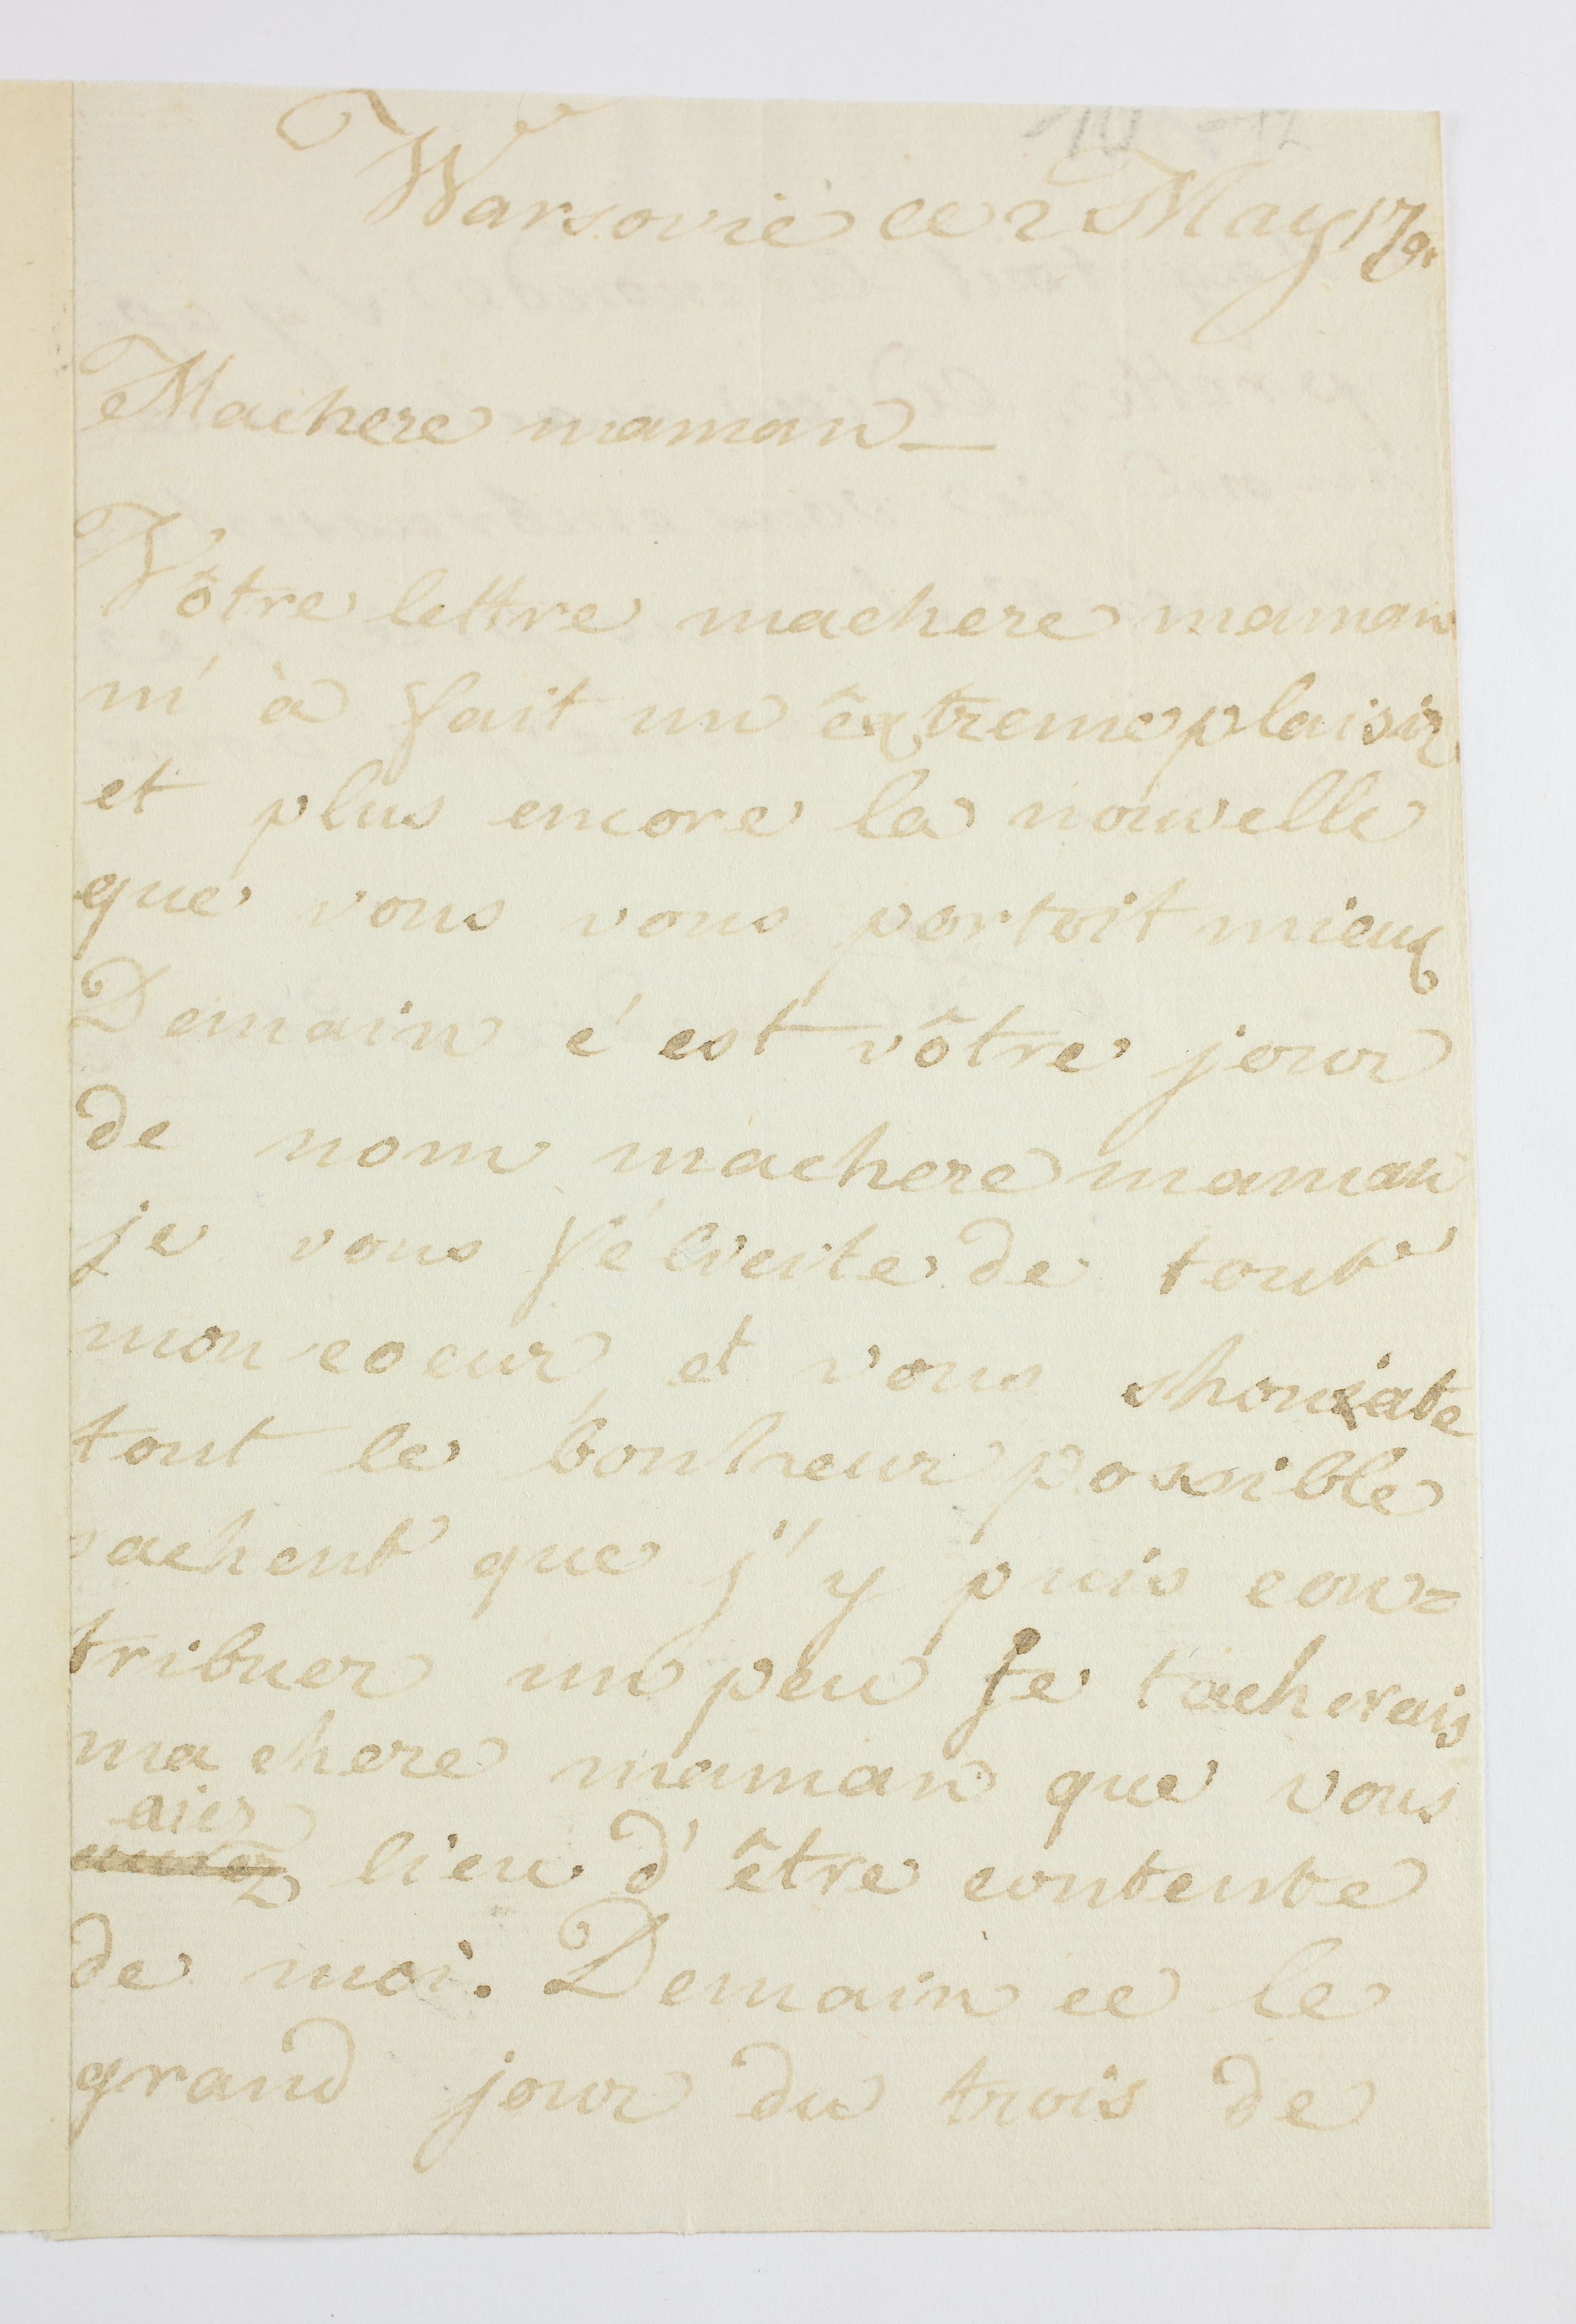 Warsovie ce 2 May 179
Machere maman
Vôtre lettre machere maman
m' à fait un êxtreme plaisir
et plus encore la nouvelle
que vous vous portoit mieux
Demain c' est vôtre jour
de nom machere maman
je vous félicite de tout
mon coeur, et vous shouate
tout le bonheur possible
sachent que j' y puis con=
tribuer un peu je tacherais
ma chere maman que vous
aies
aurez lieu d' être contente
de moi. Demain ce le
grand jour du trois de